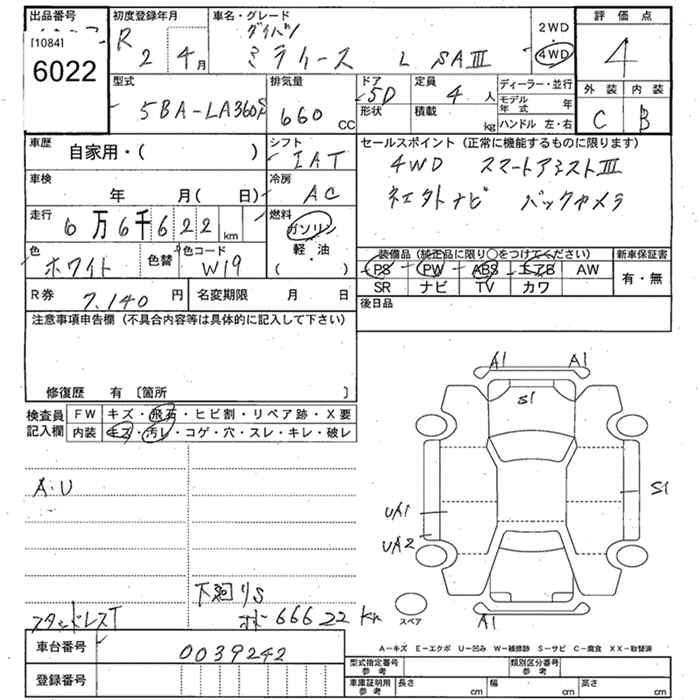 出品番号 初度登録年月 車名・グレード 評価点
[1084] 6022
R 2 4月
ミライース L SAⅢ
2WD
4WD
4
型式 排気量 ドア 定員 ディーラー・並行 外装 内装
5BA-LA360S 660 CC 5D 4人
形状 積載 kg
モデル年式 年
ハンドル 左・右
C B
車歴 自家用・( )
シフト IAT
セールスポイント (正常に機能するものに限ります)
4WD スマートアシストⅢ
車検 年 月( 日)
冷房 AC
バックカメラ
走行 6万6千622 km
燃料 ガソリン 軽・油 ( )
色 ホワイト 色替 色コード W19
装備品 (純正品に限り○をつけてください) 新車保証書
PS PW ABS エアB AW
SR ナビ TV カワ
有・無
R券 7,140円 名変期限 月 日
後日品
注意事項申告欄 (不具合内容等は具体的に記入して下さい)
修復歴 有 〔箇所 〕
検査員記入欄
FW キズ・飛石・ヒビ割・リペア跡・X要
内装 キズ・汚レ・コゲ・穴・スレ・キレ・破レ
A.U
A1 A1
S1
S1
UA1
UA2
A1
スペア
下廻りS
スタッドレスT
666 22 km
車台番号 0039242
登録番号
A-キズ E-エクボ U-凹み W-補修跡 S-サビ C-腐食 XX-取替済
型式指定番号 参考 類別区分番号 参考
車庫証明用 参考 長さ cm 幅 cm 高さ cm